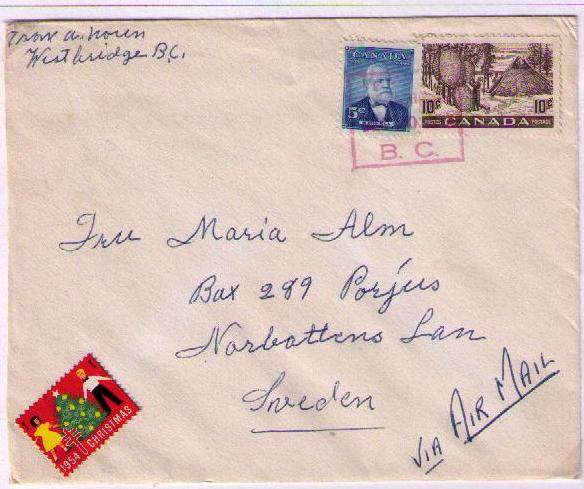 From A. Noren
Westbridge B.C.
CANADA
5¢
10¢ 10¢
POSTES CANADA POSTAGE
B. C.
Fru Maria Alm
Box 289 Porjus
Norbottens Lan
Sweden
VIA AIR MAIL
1954 CHRISTMAS